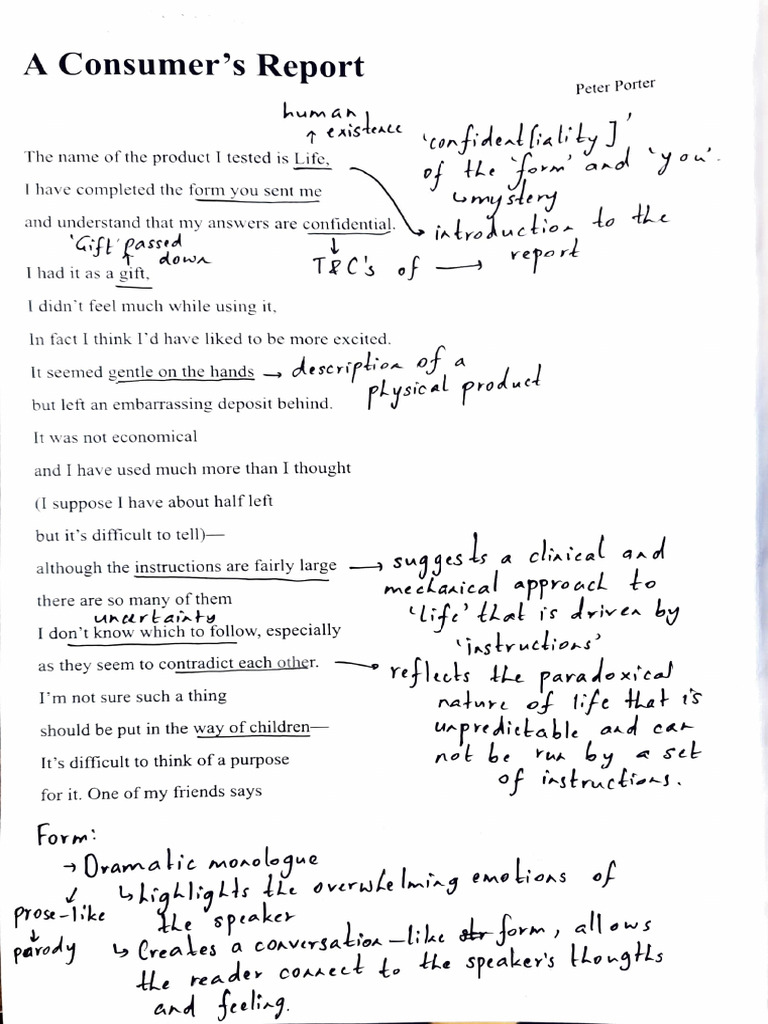 A Consumer's Report
Peter Porter
human
↑ existence
'confident[iality]'
of the 'form' and 'you'.
↳mystery
The name of the product I tested is Life,
I have completed the form you sent me
and understand that my answers are confidential.
→ introduction to the
report
↓
T&C's of →
'Gift' passed
down
I had it as a gift,
I didn't feel much while using it,
In fact I think I'd have liked to be more excited.
It seemed gentle on the hands → description of a
physical product
but left an embarrassing deposit behind.
It was not economical
and I have used much more than I thought
(I suppose I have about half left
but it's difficult to tell)—
although the instructions are fairly large → suggests a clinical and
mechanical approach to
'life' that is driven by
'instructions'
there are so many of them
uncertainty
I don't know which to follow, especially
as they seem to contradict each other. → reflects the paradoxical
nature of life that is
unpredictable and can
not be run by a set
of instructions.
I'm not sure such a thing
should be put in the way of children—
It's difficult to think of a purpose
for it. One of my friends says
Form:
→ Dramatic monologue
↳highlights the overwhelming emotions of
the speaker
prose-like
↓
parody
↳ Creates a conversation-like str form, allows
the reader connect to the speaker's thougths
and feeling.